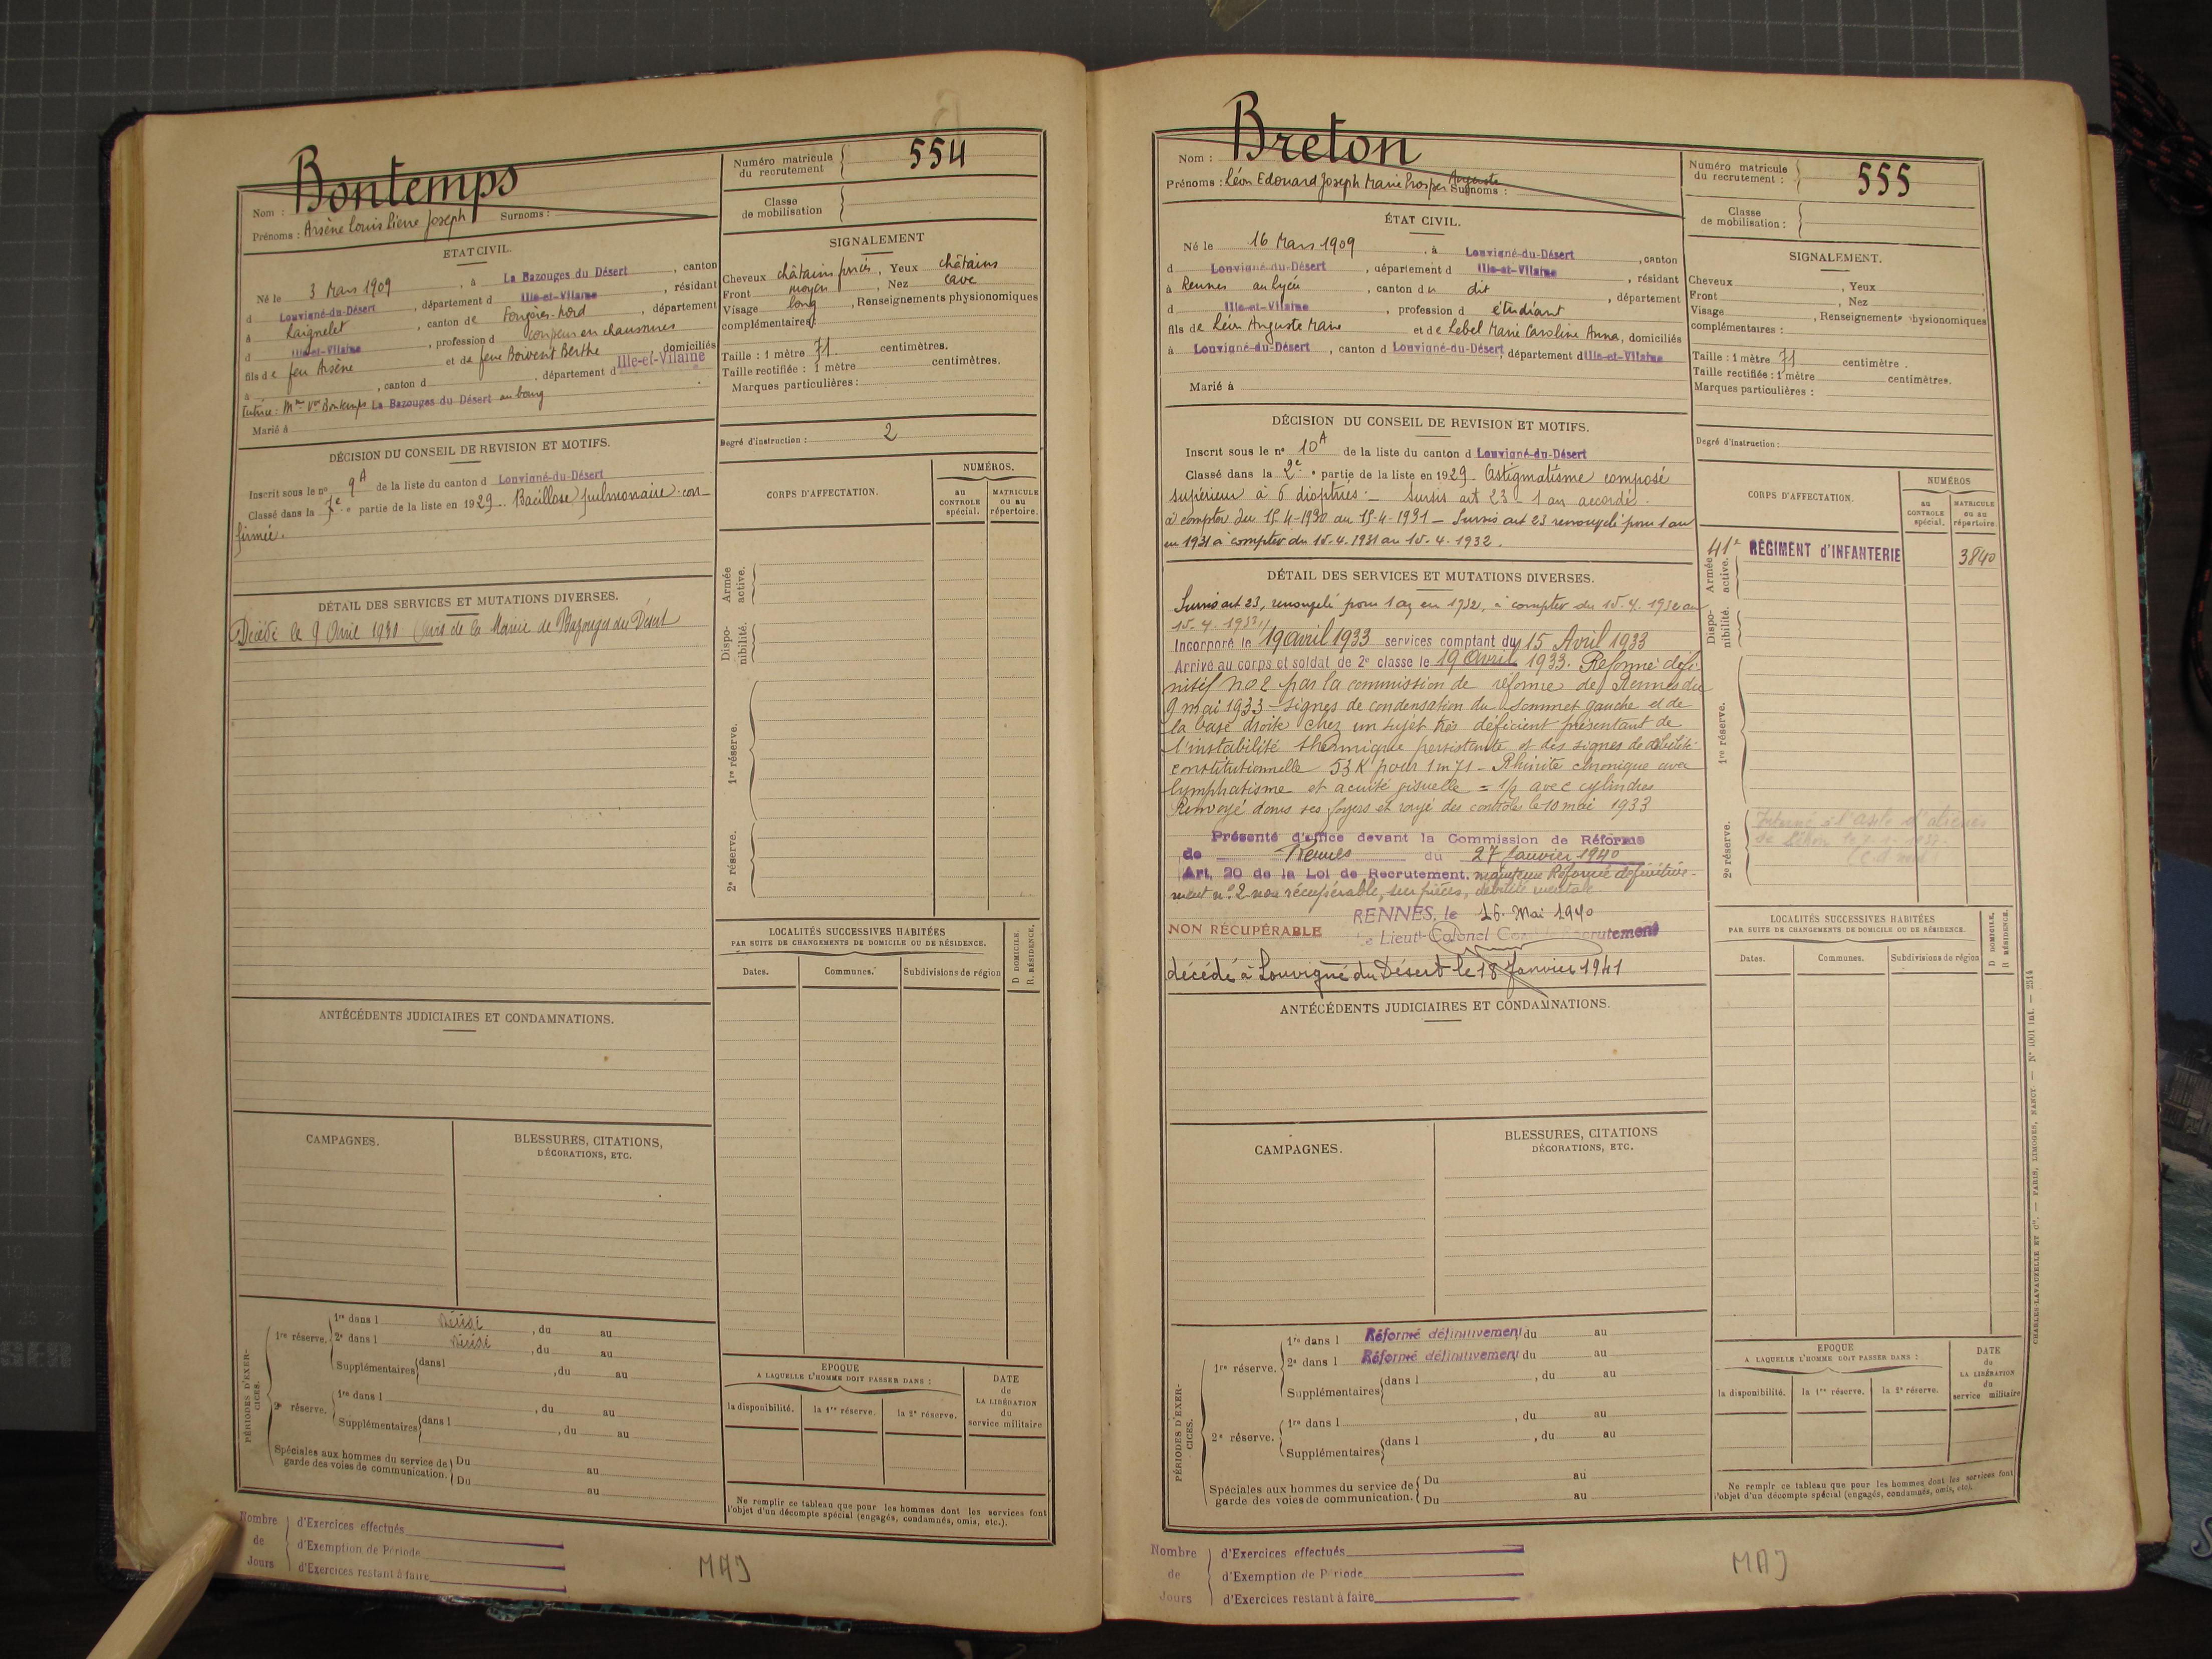 Bontemps
Numéro matricule du recrutement 554
Nom :
Prénoms : Arsène Louis Pierre Joseph Surnoms :
Classe de mobilisation
ÉTAT CIVIL.
Né le 3 Mars 1909, à La Bazouges du Désert, canton
d Louvigné-du-Désert, département d Ille-et-Vilaine, résidant
à Laignelet, canton de Fougères-Nord, département
d Ille-et-Vilaine, profession d coupeur en chaussures
fils de feu Arsène et de feue Boivent Berthe domiciliés
à , canton d , département d Ille-et-Vilaine
tutrice : Mme Vve Bontemps La Bazouges du Désert au bourg
Marié à
SIGNALEMENT
Cheveux châtains foncés, Yeux châtains
Front moyen, Nez cave
Visage long, Renseignements physionomiques
complémentaires :
Taille : 1 mètre 71 centimètres.
Taille rectifiée : 1 mètre centimètres.
Marques particulières :
Degré d'instruction : 2
DÉCISION DU CONSEIL DE REVISION ET MOTIFS.
Inscrit sous le n° 9A de la liste du canton d Louvigné-du-Désert
Classé dans la 7e partie de la liste en 1929. Bacillose pulmonaire con-
firmée.
CORPS D'AFFECTATION.
NUMÉROS.
au CONTROLE spécial.
MATRICULE ou au répertoire.
Armée active.
Disponibilité.
1re réserve.
2e réserve.
DÉTAIL DES SERVICES ET MUTATIONS DIVERSES.
Décédé le 9 Avril 1930 (avis de la Mairie de Bazouges du Désert
LOCALITÉS SUCCESSIVES HABITÉES
PAR SUITE DE CHANGEMENTS DE DOMICILE OU DE RÉSIDENCE.
Dates. Communes. Subdivisions de région
D DOMICILE.
R. RÉSIDENCE.
ANTÉCÉDENTS JUDICIAIRES ET CONDAMNATIONS.
CAMPAGNES.
BLESSURES, CITATIONS,
DÉCORATIONS, ETC.
PÉRIODES D'EXER-
CICES.
1re réserve. 1re dans l Décédé, du au
2e dans l Décédé, du au
Supplémentaires dans l , du au
2e réserve. 1re dans l , du au
Supplémentaires dans l , du au
Spéciales aux hommes du service de garde des voies de communication. Du au
Du au
EPOQUE
A LAQUELLE L'HOMME DOIT PASSER DANS :
la disponibilité. la 1re réserve. la 2e réserve.
DATE de LA LIBÉRATION du service militaire
Ne remplir ce tableau que pour les hommes dont les services font
l'objet d'un décompte spécial (engagés, condamnés, omis, etc.).
Nombre de Jours
d'Exercices effectués
d'Exemption de Période
d'Exercices restant à faire
MAJ
Breton
Nom :
Numéro matricule du recrutement : 555
Prénoms : Léon Edouard Joseph Marie Prosper Auguste Surnoms :
Classe de mobilisation :
ÉTAT CIVIL.
Né le 16 Mars 1909, à Louvigné-du-Désert, canton
d Louvigné-du-Désert, département d Ille-et-Vilaine, résidant
à Rennes au lycée, canton du dit, département
d Ille-et-Vilaine, profession d étudiant
fils de Léon Auguste Marie et de Lebel Marie Caroline Anna, domiciliés
à Louvigné-du-Désert, canton d Louvigné-du-Désert, département d Ille-et-Vilaine
Marié à
SIGNALEMENT.
Cheveux , Yeux
Front , Nez
Visage , Renseignements physionomiques
complémentaires :
Taille : 1 mètre 71 centimètre.
Taille rectifiée : 1 mètre centimètres.
Marques particulières :
Degré d'instruction :
DÉCISION DU CONSEIL DE REVISION ET MOTIFS.
Inscrit sous le n° 10A de la liste du canton d Louvigné-du-Désert
Classé dans la 2e partie de la liste en 1929. Astigmatisme composé
supérieur à 6 dioptries – Sursis art 23 – 1 an accordé.
à compter du 15-4-1930 au 15-4-1931 – Sursis art 23 renouvelé pour 1 an
en 1931 à compter du 15.4.1931 au 15.4.1932.
CORPS D'AFFECTATION.
NUMÉROS
au CONTROLE spécial.
MATRICULE ou au répertoire.
Armée active.
41e RÉGIMENT d'INFANTERIE 3840
Disponibilité.
1re réserve.
2e réserve.
Interné à l'Asile d'aliénés
DÉTAIL DES SERVICES ET MUTATIONS DIVERSES.
Sursis art 23, renouvelé pour 1 an en 1932, à compter du 15.4.1932 au
15.4.1933
Incorporé le 19 avril 1933 services comptant du 15 Avril 1933
Arrivé au corps et soldat de 2e classe le 19 Avril 1933. Réformé défi-
nitif no 2 par la commission de réforme de Rennes du
9 mai 1933 – Signes de condensation du Sommet gauche et de
la base droite chez un sujet très déficient présentant de
l'instabilité thermique persistante et des signes de débilité
constitutionnelle 53 K pour 1m71 – Rhinite chronique avec
lymphatisme et acuité visuelle = 1/2 avec cylindres
Renvoyé dans ses foyers et rayé des contrôles le 10 mai 1933
Présenté d'office devant la Commission de Réforme
de Rennes du 27 Janvier 1940
Art. 20 de la Loi de Recrutement. maintenu Réformé définitive-
ment n° 2 non récupérable, sur pièces, débilité mentale.
RENNES, le 16 Mai 1940
NON RÉCUPÉRABLE
Le Lieut-Colonel Comt le Recrutement
décédé à Louvigné du Désert le 18 Janvier 1941
LOCALITÉS SUCCESSIVES HABITÉES
PAR SUITE DE CHANGEMENTS DE DOMICILE OU DE RÉSIDENCE.
Dates. Communes. Subdivisions de région
D DOMICILE.
R. RÉSIDENCE.
ANTÉCÉDENTS JUDICIAIRES ET CONDAMNATIONS.
CAMPAGNES.
BLESSURES, CITATIONS
DÉCORATIONS, ETC.
PÉRIODES D'EXER-
CICES.
1re réserve. 1re dans l Réformé définitivement du au
2e dans l Réformé définitivement du au
Supplémentaires dans l , du au
2e réserve. 1re dans l , du au
Supplémentaires dans l , du au
Spéciales aux hommes du service de garde des voies de communication. Du au
Du au
EPOQUE
A LAQUELLE L'HOMME DOIT PASSER DANS :
la disponibilité. la 1re réserve. la 2e réserve.
DATE de LA LIBÉRATION du service militaire
Ne remplir ce tableau que pour les hommes dont les services font
l'objet d'un décompte spécial (engagés, condamnés, omis, etc.).
CHARLES-LAVAUZELLE ET Cie. — PARIS, LIMOGES, NANCY. — N° 1001 int. — 2514
Nombre de Jours
d'Exercices effectués
d'Exemption de Période
d'Exercices restant à faire
MAJ